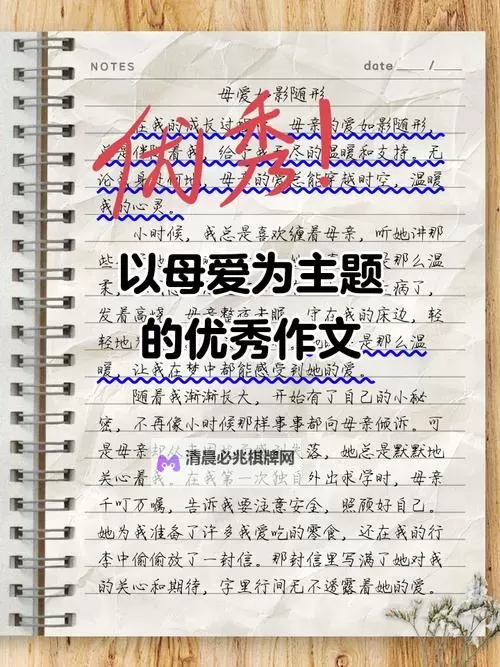 NOTES
date ___ / ___
母爱如影随形
优秀!
在我的成长过 母亲的爱如影随形,
总是伴随着我,给了我无尽的温暖和支持。无
论 身 何地,母亲的爱总能穿越时空,温暖
我的心灵。
小时候,我总是喜欢缠着母亲,听她讲那
些 地 是那么温
柔, 病了,
以母爱为主题
发着高烧,母亲整夜未眠,守在我的床边,轻
轻地 是那么温
的优秀作文
暖,让我在梦中都能感受到她的爱。
随着我渐渐长大,开始有了自己的小秘
密,不再像小时候那样事事都向母亲倾诉。可
是母亲却从 落,她总是默默地
清晨必兆棋牌网
关心着我。在我第一次独自外出求学时,母亲
千叮万嘱,告诉我要注意安全,照顾好自己。
她为我准备了许多我爱吃的零食,还在我的行
李中偷偷放了一封信。那封信里写满了她对我
的关心和期待,字里行间无不透露着她的爱。